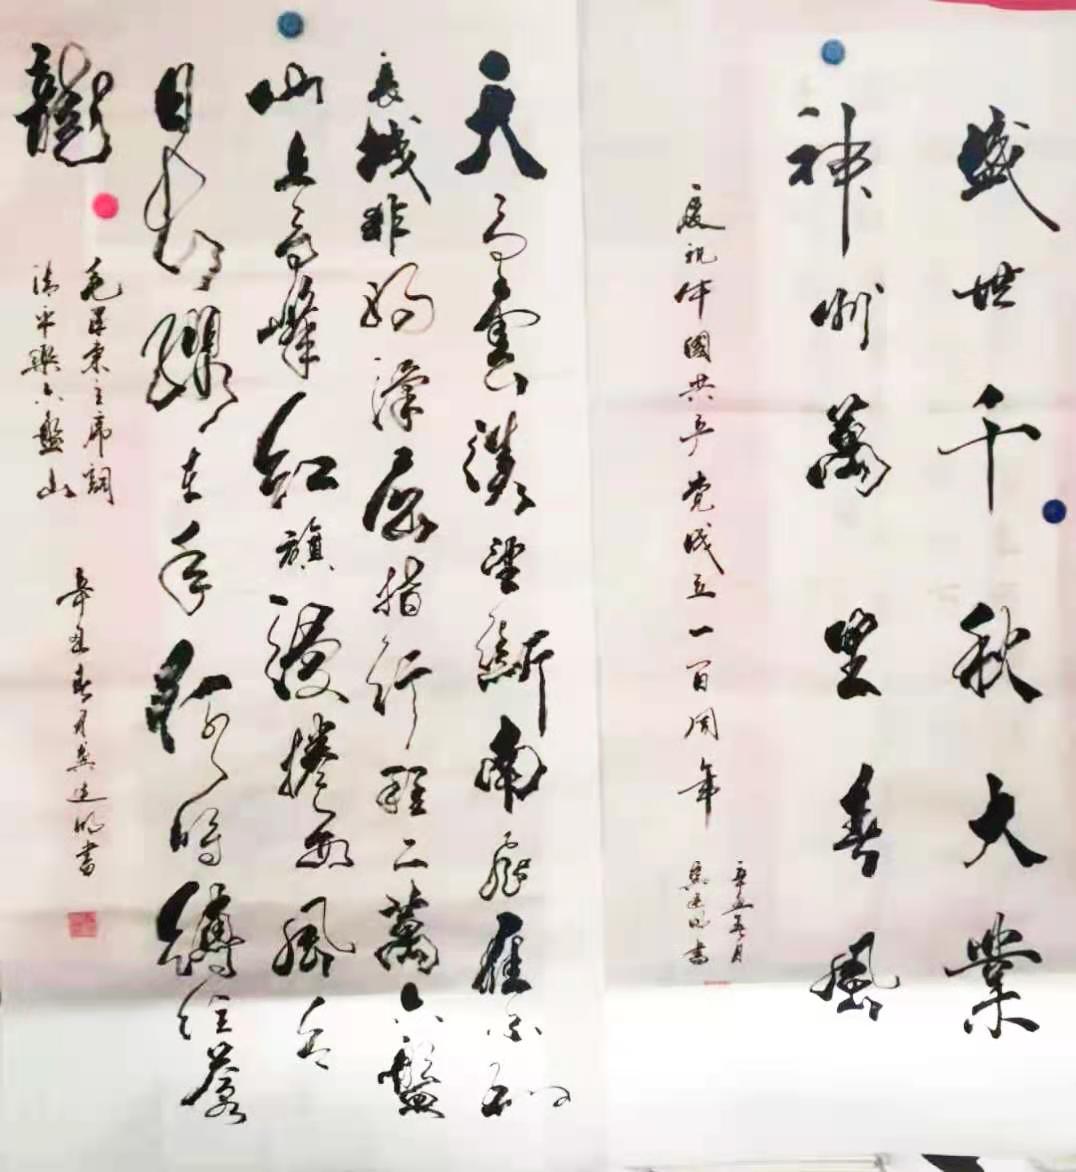 盛世千秋大業
神州萬里春風
慶祝中國共产党成立一百周年
辛丑春月
建明書
天高雲淡望斷南飛雁不到
長城非好漢屈指行程二萬六盤
山上高峰红旗漫捲西風今
日長纓在手何時縛住蒼
龍
毛泽東主席詞
清平樂六盤山
辛丑春月建明書